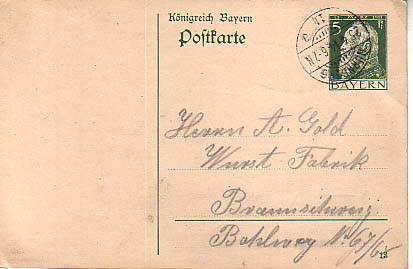 Königreich Bayern
Postkarte
5 Pf
BAYERN
Herrn A. Gold
Wurst Fabrik
Braunschweig
Bohlweg No 67/65
12